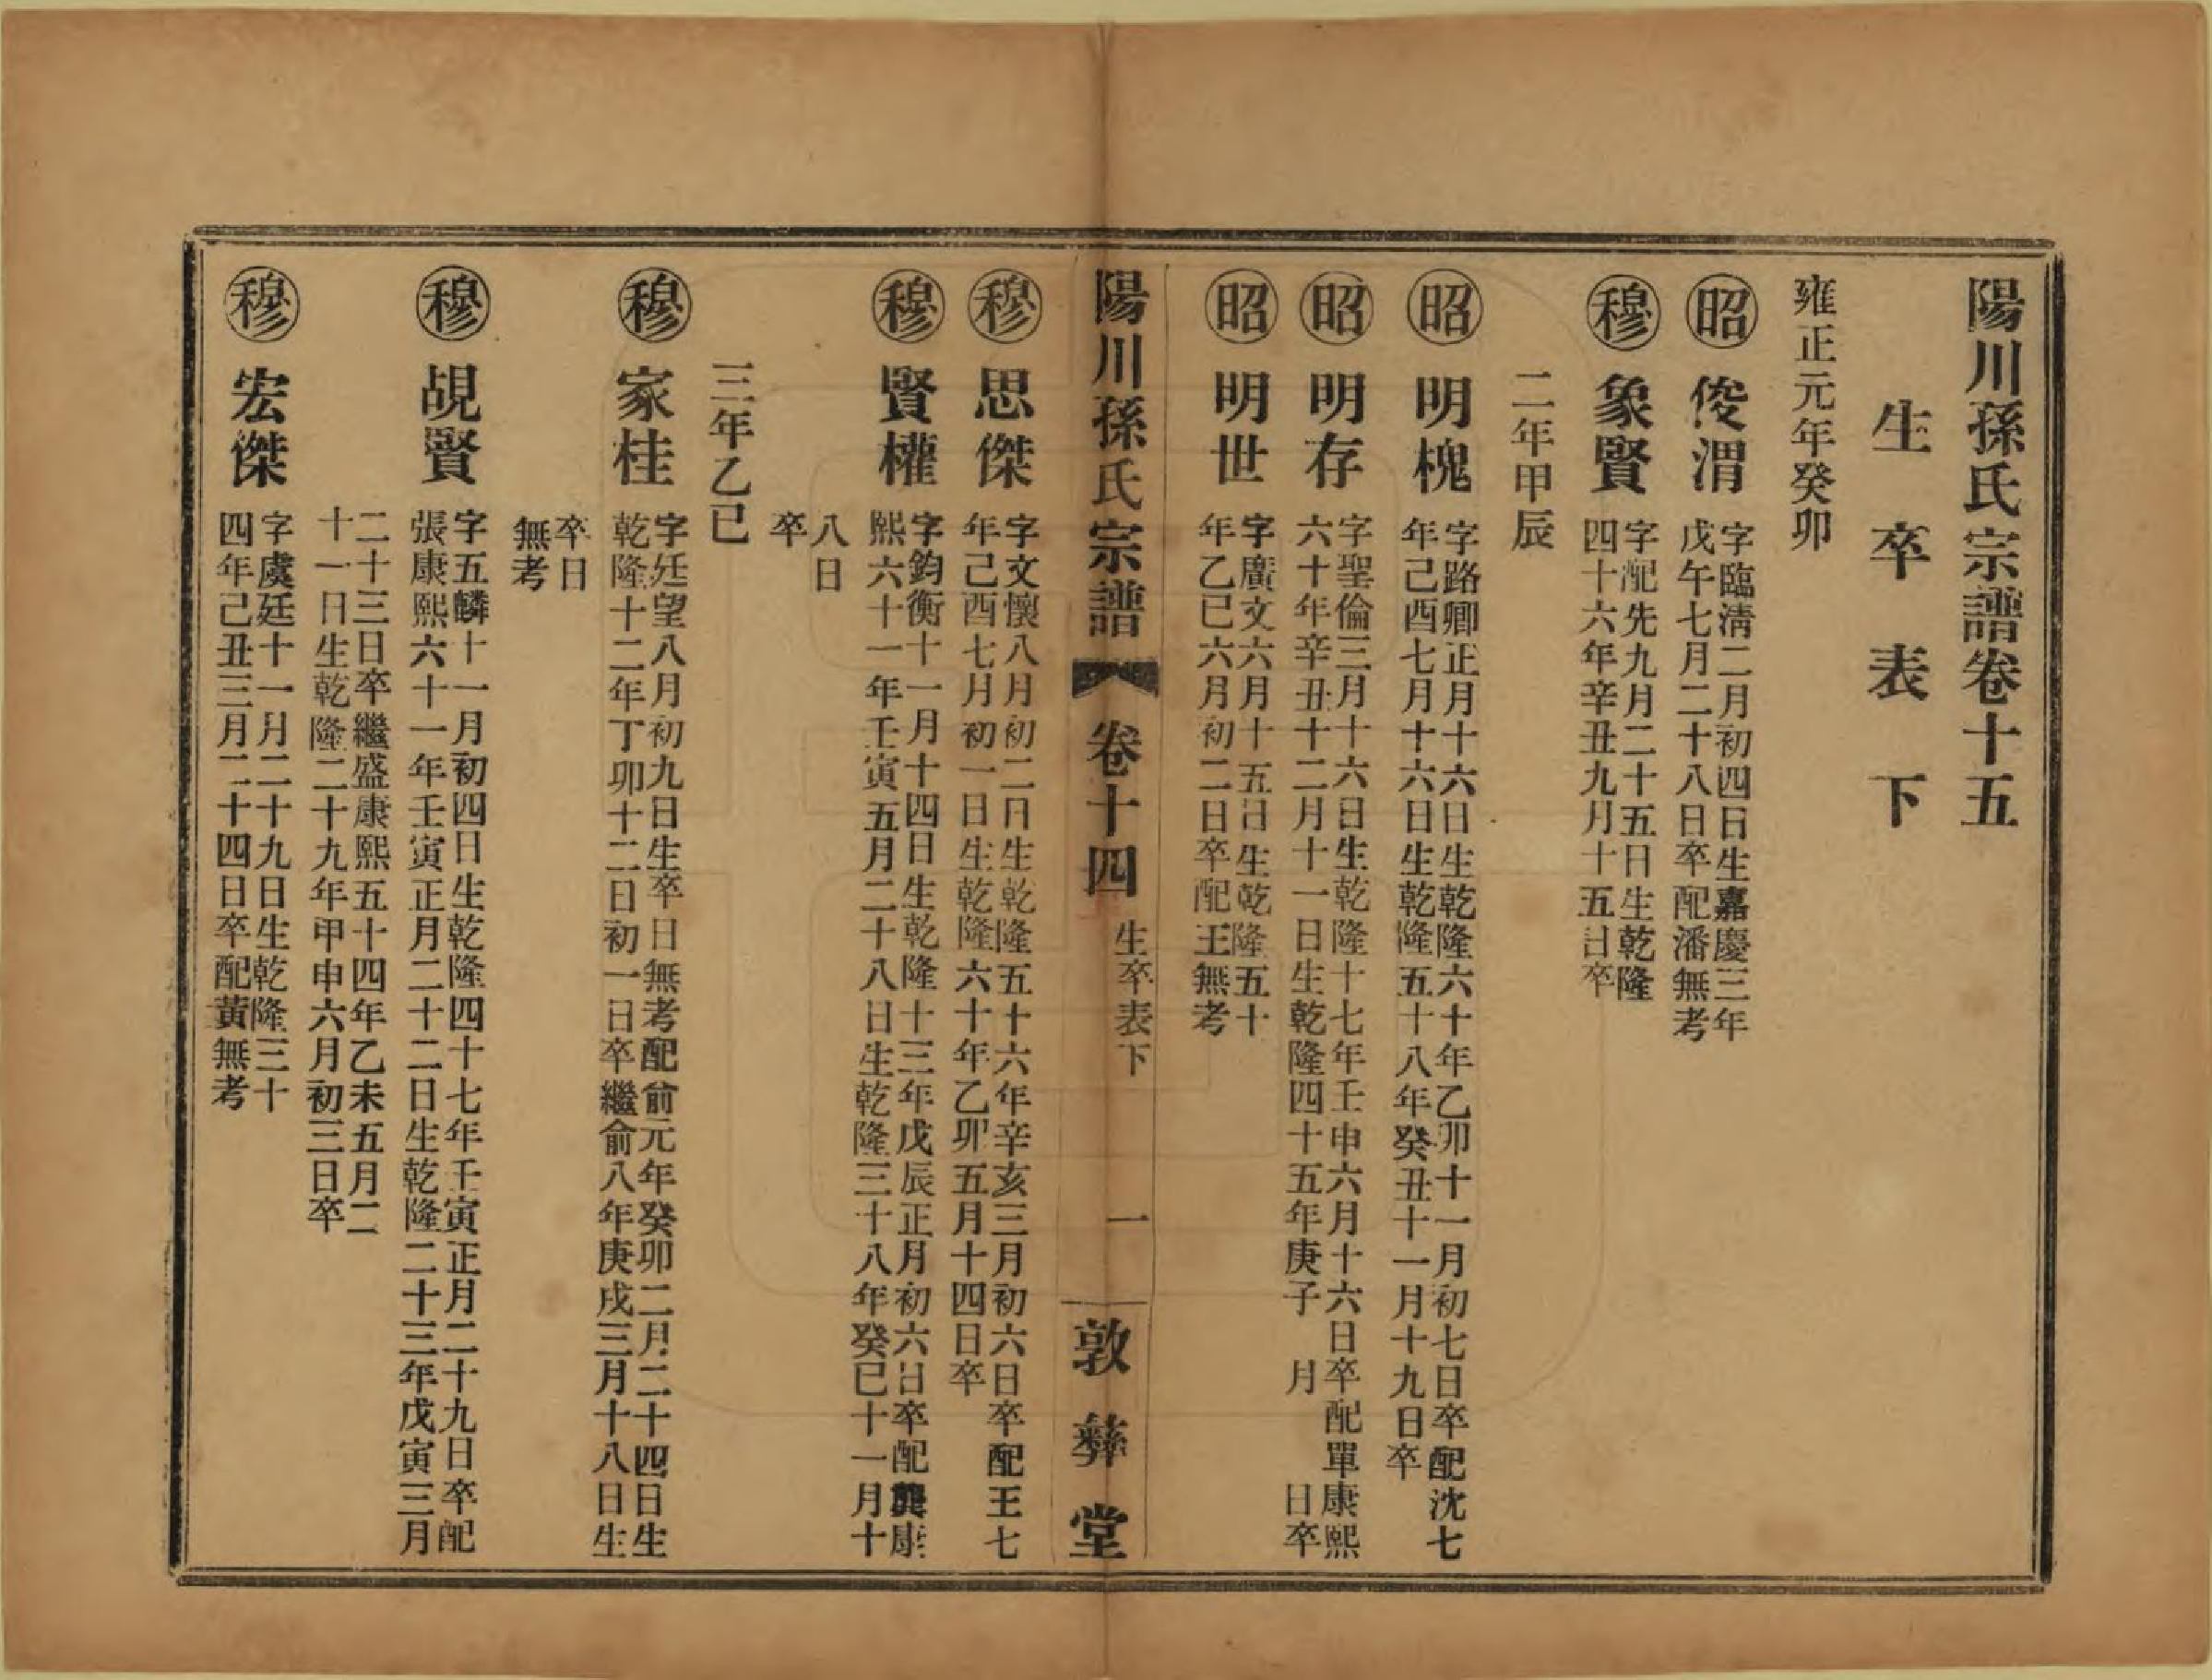 陽川孫氏宗譜卷十五
生卒表下
雍正元年癸卯
昭 俊渭
字臨淸二月初四日生嘉慶三年
戊午七月二十八日卒配潘無考
穆 象賢
字配先九月二十五日生乾隆
四十六年辛丑九月十五日卒
二年甲辰
昭 明槐
字路卿正月十六日生乾隆六十年乙卯十一月初七日卒配沈七
年己酉七月十六日生乾隆五十八年癸丑十一月十九日卒
昭 明存
字聖倫三月十六日生乾隆十七年壬申六月十六日卒配單康熙
六十年辛丑十二月十一日生乾隆四十五年庚子 月 日卒
昭 明世
字廣文六月十五日生乾隆五十
年乙巳六月初二日卒配王無考
陽川孫氏宗譜 卷十四 生卒表下 一 敦彝堂
穆 思傑
字文懷八月初二日生乾隆五十六年辛亥三月初六日卒配王七
年己酉七月初一日生乾隆六十年乙卯五月十四日卒
穆 賢權
字鈞衡十一月十四日生乾隆十三年戊辰正月初六日卒配龔康
熙六十一年壬寅五月二十八日生乾隆三十八年癸巳十一月十
八日
卒
三年乙巳
穆 家桂
字廷望八月初九日生卒日無考配俞元年癸卯二月二十四日生
乾隆十二年丁卯十二日初一日卒繼俞八年庚戌三月十八日生
卒日
無考
穆 覘賢
字五麟十一月初四日生乾隆四十七年壬寅正月二十九日卒配
張康熙六十一年壬寅正月二十二日生乾隆二十三年戊寅三月
二十三日卒繼盛康熙五十四年乙未五月二
十一日生乾隆二十九年甲申六月初三日卒
穆 宏傑
字虞廷十一月二十九日生乾隆三十
四年己丑三月二十四日卒配黃無考